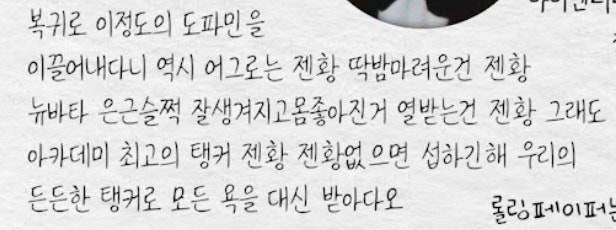 복귀로 이정도의 도파민을
이끌어내다니 역시 어그로는 젠황 딱밤마려운건 젠황
뉴바타 은근슬쩍 잘생겨지고몸좋아진거 열받는건 젠황 그래도
아카데미 최고의 탱커 젠황 젠황없으면 섭하긴해 우리의
든든한 탱커로 모든 욕을 대신 받아다오
롤링페이퍼는